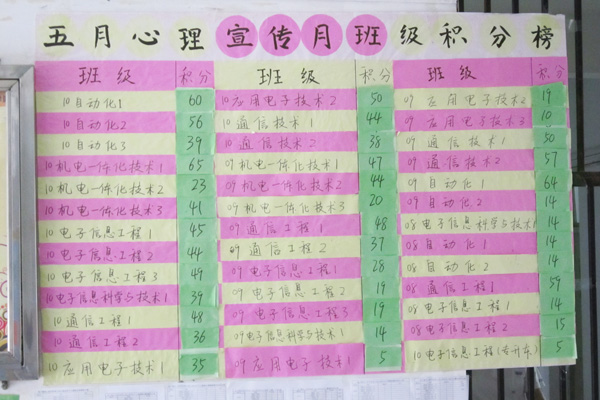 五月心理宣传月班级积分榜
班级 积分 班级 积分 班级 积分
10自动化1 60 10应用电子技术2 50 09应用电子技术2 19
10自动化2 56 10通信技术1 44 09应用电子技术3 10
10自动化3 39 10通信技术2 38 09通信技术1 50
10机电一体化技术1 65 09机电一体化技术1 47 09通信技术2 57
10机电一体化技术2 23 09机电一体化技术2 44 09自动化1 64
10机电一体化技术3 41 09机电一体化技术3 20 09自动化2 14
10电子信息工程1 45 09通信工程1 48 08电子信息科学与技术1 14
10电子信息工程2 44 09通信工程2 37 08自动化1 14
10电子信息工程3 49 09电子信息工程1 28 08自动化2 14
10电子信息科学与技术1 39 09电子信息工程2 19 08通信工程1 59
10通信工程1 48 09电子信息工程3 19 08电子信息工程1 14
10通信工程2 36 09电子信息科学与技术1 14 08电子信息工程2 15
10应用电子技术1 35 09应用电子技术1 5 10电子信息工程(专升本) 5